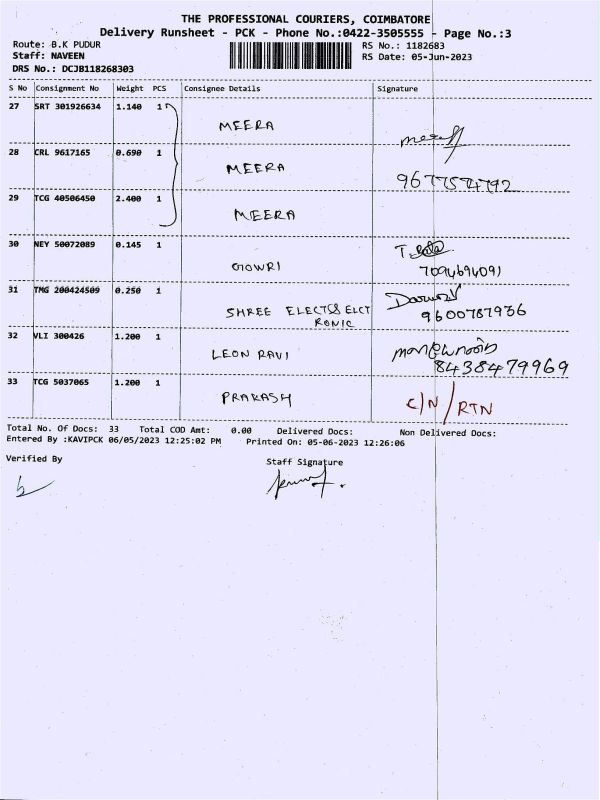 THE PROFESSIONAL COURIERS, COIMBATORE
Delivery Runsheet - PCK - Phone No.:0422-3505555 - Page No.:3
Route: B.K PUDUR RS No.: 1182683
Staff: NAVEEN RS Date: 05-Jun-2023
DRS No.: DCJB118268303
S No Consignment No Weight PCS Consignee Details Signature
27 SRT 301926634 1.140 1
MEERA
28 CRL 9617165 0.690 1
MEERA
9677574792
29 TCG 40506450 2.400 1
MEERA
30 NEY 50072089 0.145 1
GOWRI 7094694091
31 TMG 200424509 0.250 1
SHREE ELECTS& ELCT 9600787936
RONIC
32 VLI 300426 1.200 1
LEON RAVI
8438479969
33 TCG 5037065 1.200 1
PRAKASH C/N/RTN
Total No. Of Docs: 33 Total COD Amt: 0.00 Delivered Docs: Non Delivered Docs:
Entered By :KAVIPCK 06/05/2023 12:25:02 PM Printed On: 05-06-2023 12:26:06
Verified By Staff Signature